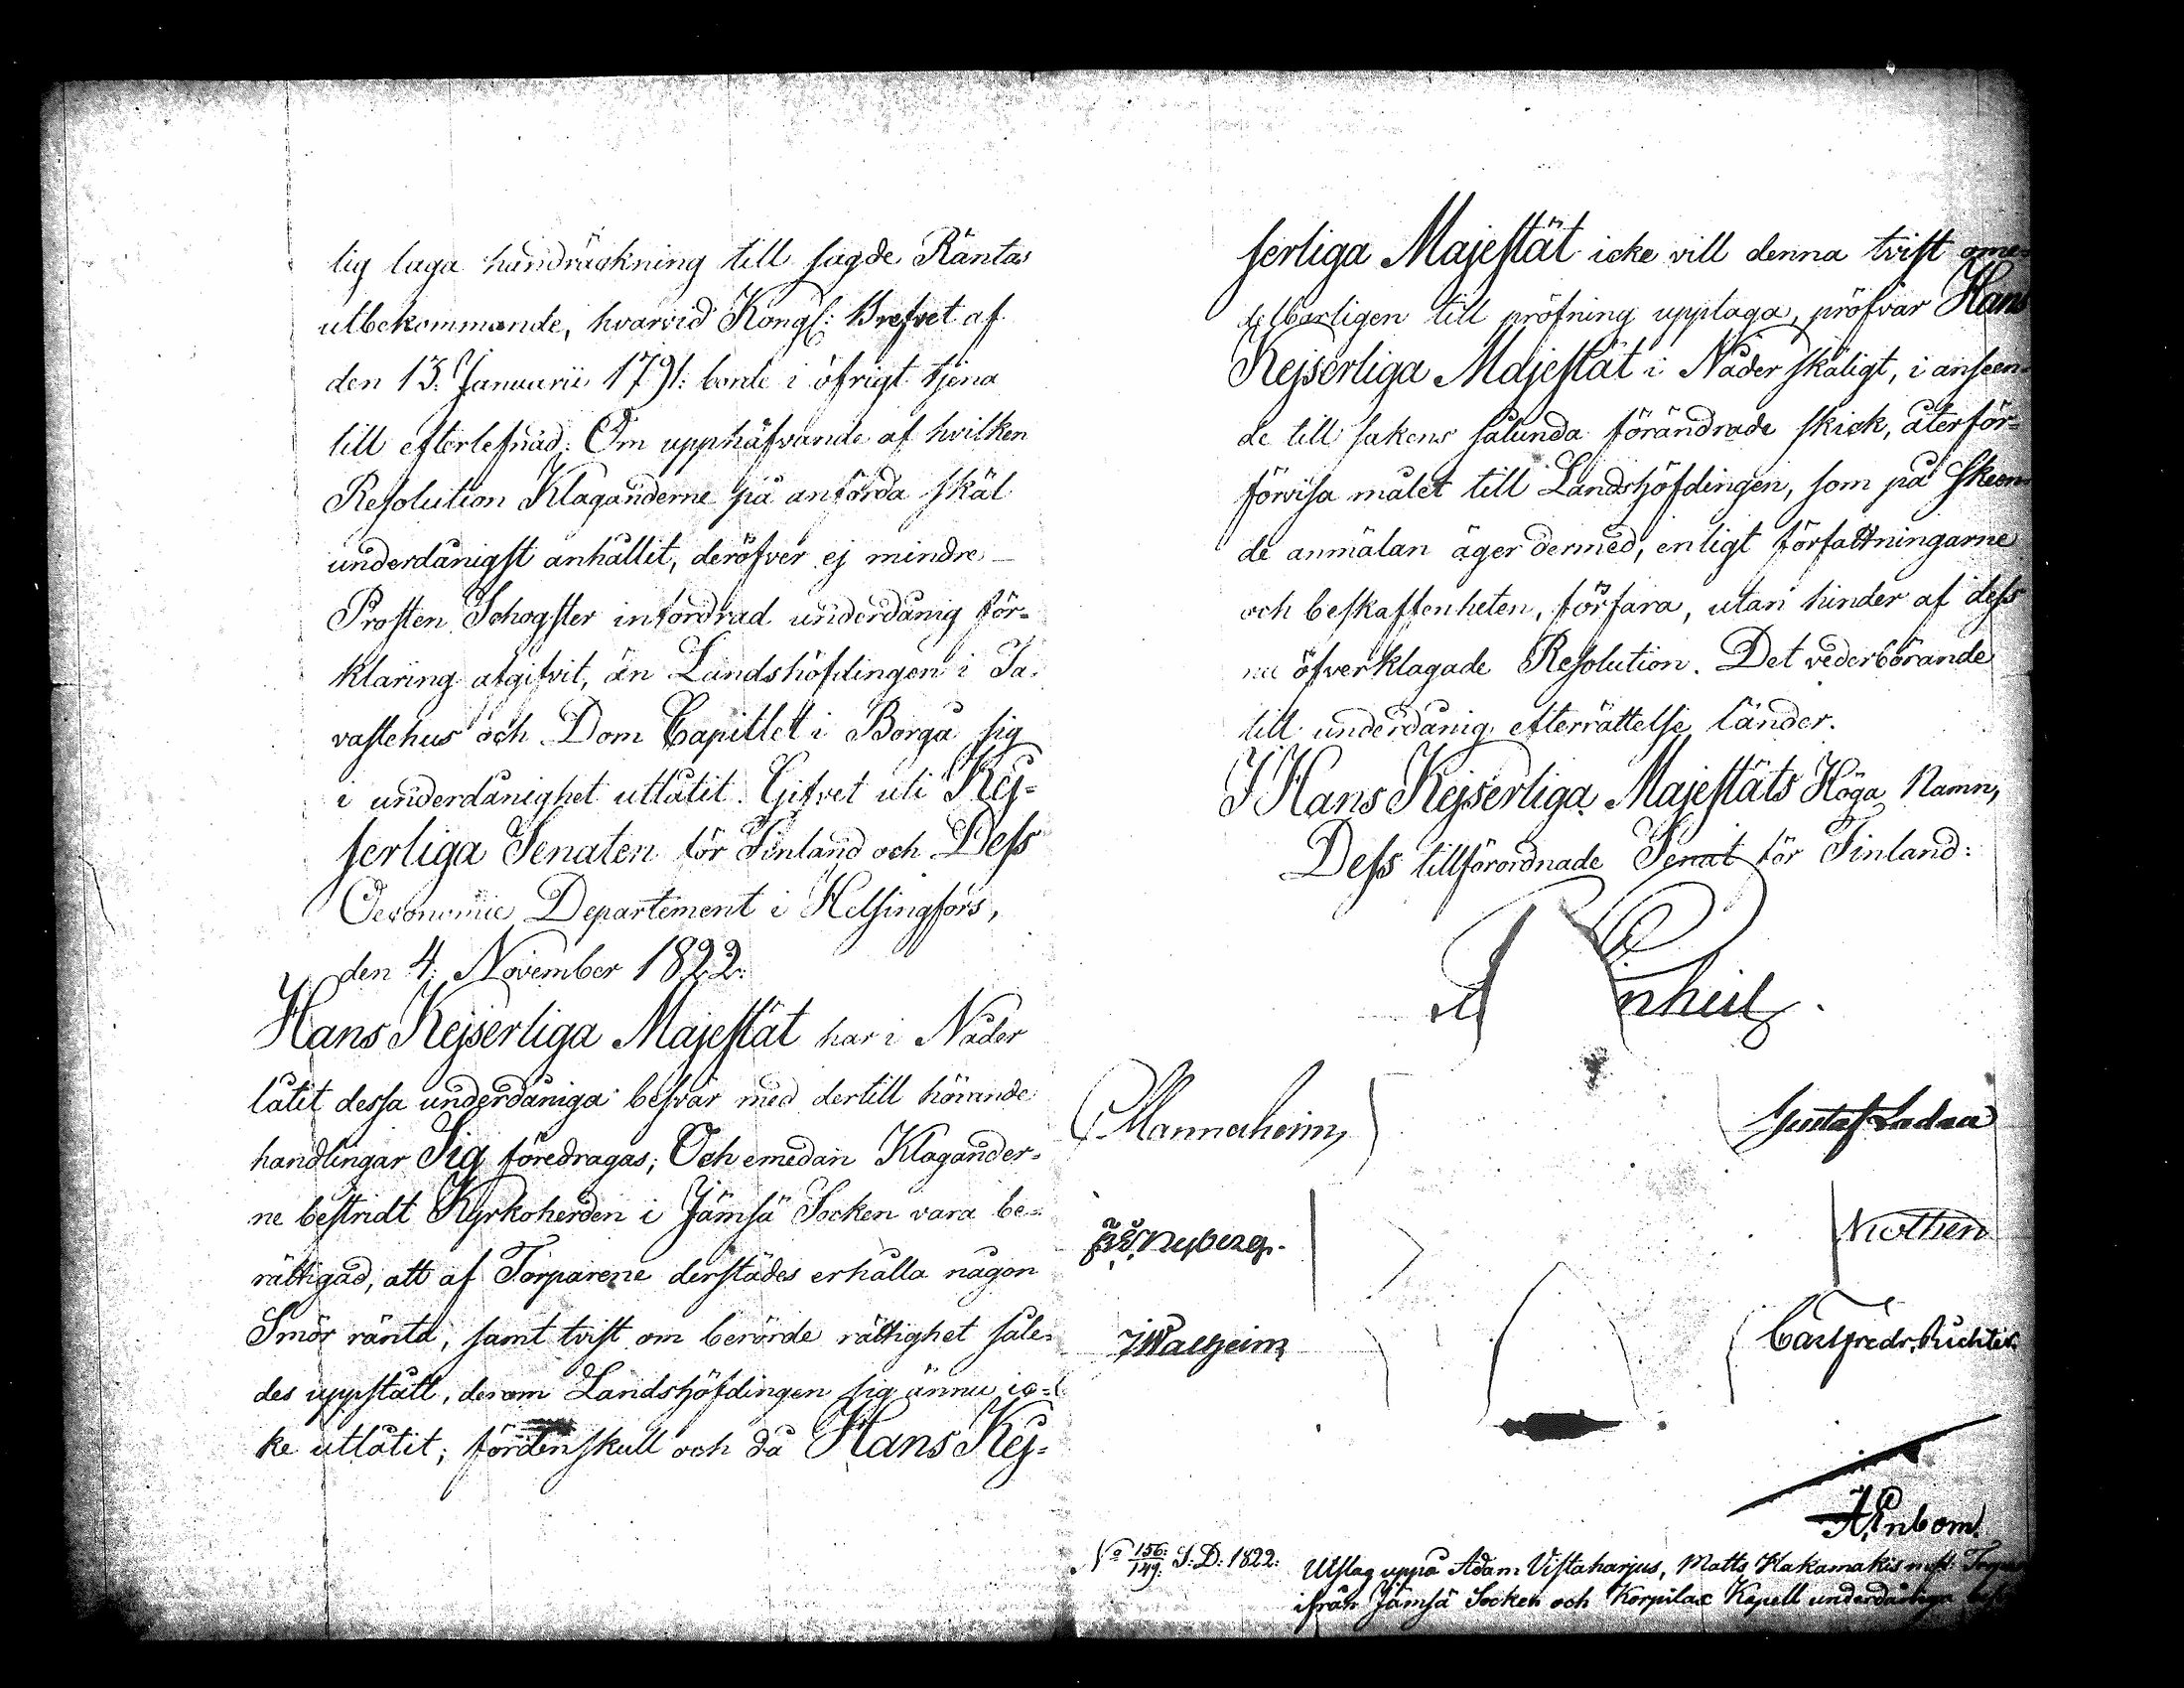 lig laga handräckning till sagde Räntas
utbekommande, hvarvid Kongl: Brefvet af
den 13. Januarii 1791: borde i öfrigt tjena
till efterlefnad: Om upphäfvande af hvilken
Resolution Klaganderne på anförda skäl
underdånigst anhållit, deröfver ej mindre
Prosten Schogster infordrad underdånig för-
klaring afgifvit, än Landshöfdingen i Ta-
vastehus och Dom Capitlet i Borgå sig
i underdånighet utlåtit. Gifvet uti Kej-
serliga Senaten för Finland och Dess
Oeconomie Departement i Helsingfors,
den 4. November 1822:
Hans Kejserliga Majestät har i Nåder
låtit dessa underdåniga besvär med dertill hörande
handlingar Sig föredragas; Och emedan Klagander-
ne bestridt Kyrkoherden i Jämsä Socken vara be-
rättigad, att af Torparene derstädes erhålla någon
Smör ränta, samt tvist om berörde rättighet såle-
des uppstått, derom Landshöfdingen sig ännu ic-
ke utlåtit; fördenskull och då Hans Kej-
serliga Majestät icke vill denna tvist ome-
delbarligen till pröfning upptaga, pröfvar Hans
Kejserliga Majestät i Nåder skäligt, i anseen-
de till sakens sålunda förändrade skick, återför-
förvisa målet till Landshöfdingen, som på skeen-
de anmälan äger dermed, enligt författningarne
och beskaffenheten, förfara, utan hinder af dess
nu öfverklagade Resolution. Det vederbörande
till underdånig efterrättelse länder.
I Hans Kejserliga Majestäts Höga Namn,
Dess tillförordnade Senat för Finland:
Mannerheim
Gustaf Ladau
Nyberg.
Nothen
J Walheim
Carl Fredr. Richter.
H Enbom.
No 156:/149: S: D: 1822:
Utslag uppå Adam Vistaharjus, Matts Hakamäkis m fl
ifrån Jämsä Socken och Korpilax Kapell underdåniga